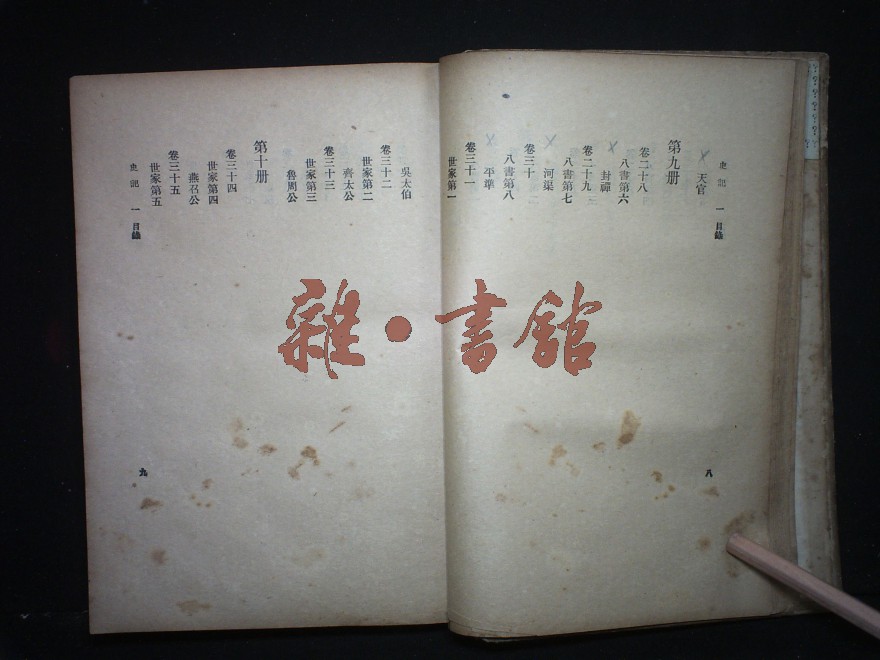 史記 一 目錄
天官
第九册
卷二十八
八書第六
封禪
卷二十九
八書第七
河渠
卷三十
八書第八
平準
卷三十一
世家第一
八
吳太伯
卷三十二
世家第二
齊太公
卷三十三
世家第三
魯周公
第十册
卷三十四
世家第四
燕召公
卷三十五
世家第五
史記 一 目錄
九
雜·書館